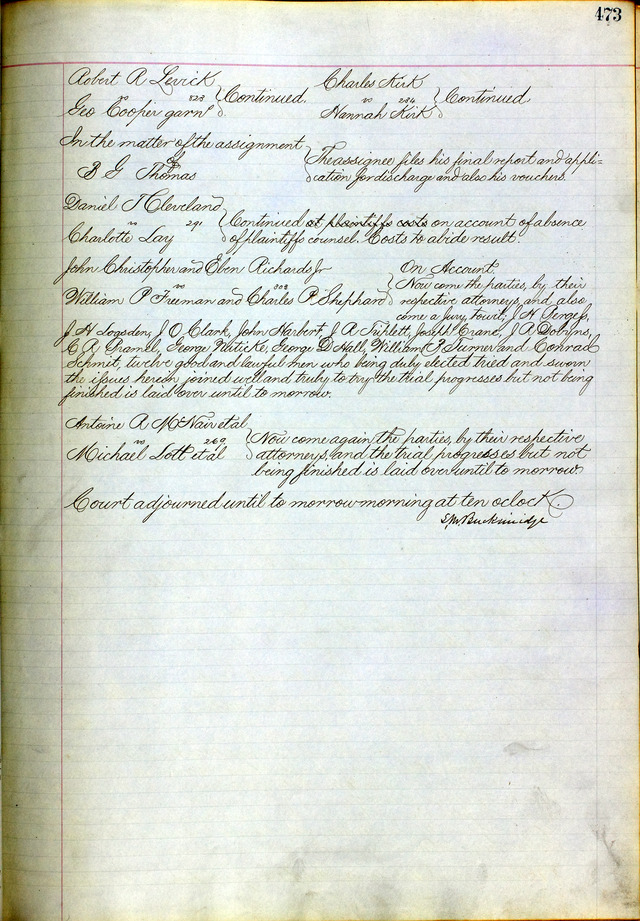 473
Robert R Levick
vs 323 } Continued.
Geo Cooper garn
Charles Kirk
vs 234 } Continued
Hannah Kirk
In the matter of the assignment
of
B G Thomas
The assignee files his final report and appli=
cation for discharge and also his vouchers.
Daniel T Cleveland
vs 291
Charlotte Lay
Continued at plaintiffs costs on account of absence
of plaintiffs counsel. Costs to abide result.
John Christopher and Eben Richards Jr
vs
William P Freeman and Charles P Shephard
On Account.
Now come the parties, by their
respective attorneys, and also
come a Jury, towit; J H
J H Logsden, J O Clark, John Harbert, J A Joseph Evans, J A
C A George George D Hall, William F Turner and Conrad
Schmit, twelve good and lawful men who being duly elected tried and sworn
the issues herein joined well and truly to try, the trial progresses but not being
finished is laid over until to morrow.
Antoine A McNair et al
vs 260
Michael Lott et al
Now come again the parties, by their respective
attorneys, and the trial progresses but not
being finished is laid over until to morrow.
Court adjourned until to morrow morning at ten oclock